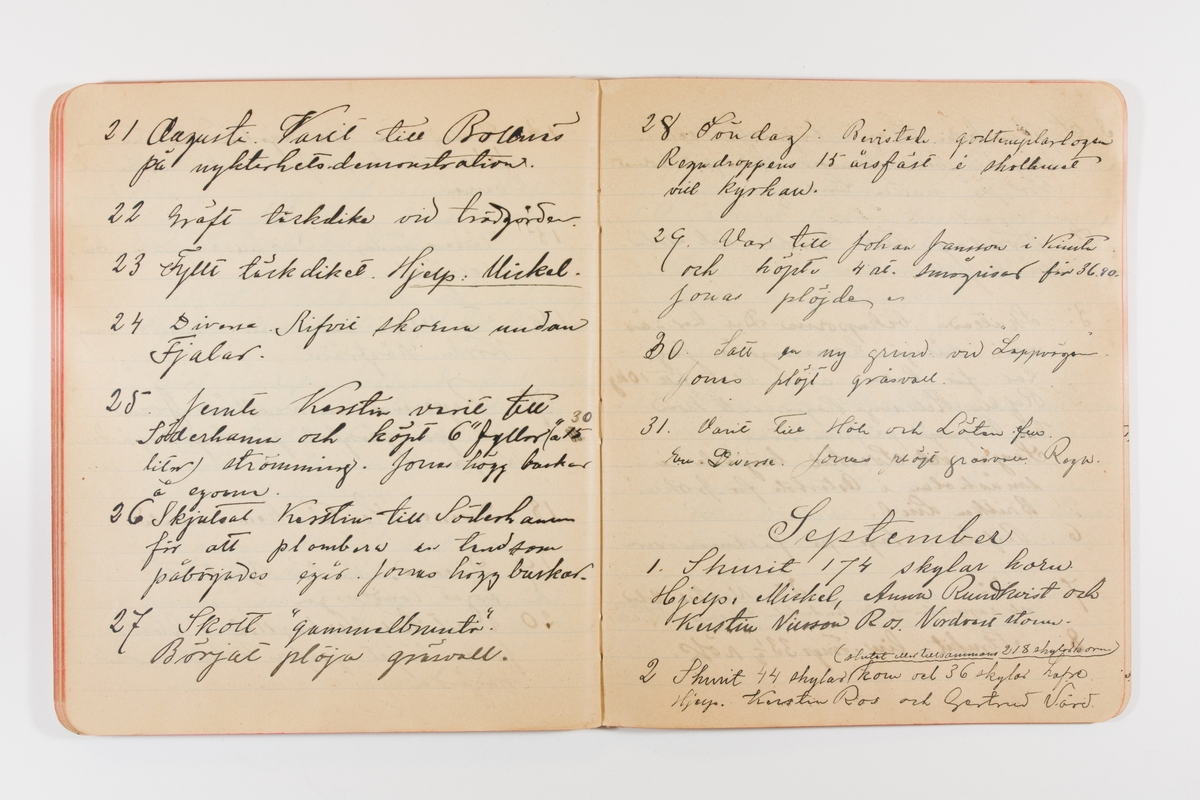 21 Augusti. Varit till Bollnäs
på nykterhetsdemonstration.
22 Gräft täckdike vid trädgården.
23 Fyllt täckdiket. Hjelp: Mickel.
24 Diverse. Rifvit skorna undan
Fjalar.
25. Jemte Kerstin varit till
Söderhamn och köpt 6 "fyllor" (à 15 30
liter) strömming. Jonas högg buskar
å egorna.
26 Skjutsat Kerstin till Söderhamn
för att plombera en tand som
påbörjades igår. Jonas högg buskar.
27 Skott "gammelbrunte".
Börjat plöja gräsvall.
28. Söndag. Bevistade godtemplarlogen
Regndroppens 15 årsfäst i skolhuset
vid kyrkan.
29. Var till Johan Jansson i
och köpte 4 st. smågrisar för 36.40.
Jonas plöjde
30. Satt en ny grind vid Lappvägen.
Jonas plöjt gräsvall.
31. Varit till Höle och Löten
Diverse. Jonas plöjt gräsvall. Regn.
September
1. Skurit 174 skylar korn
Hjelp. Mickel, Anna Rundkvist och
Kerstin Ros. Nordväst storm.
(slutat eller tillsammans 218 skylar korn)
2 Skurit 44 skylar korn och 36 skylar hafre
Hjelp. Kerstin Ros och Gertrud Vård.